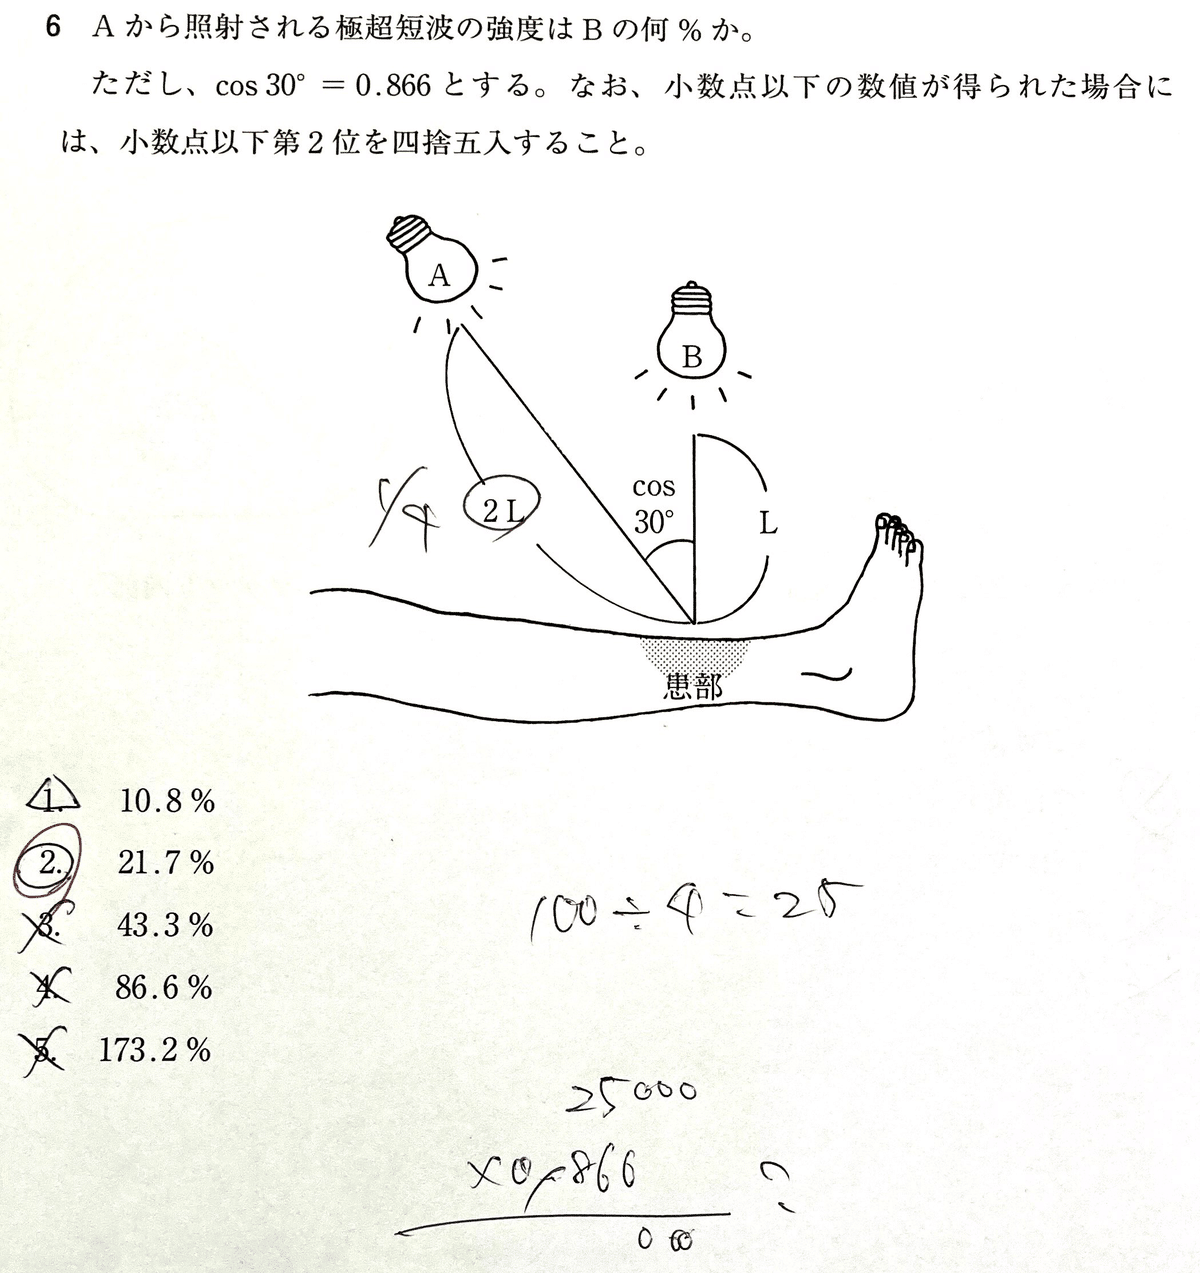 6 Aから照射される極超短波の強度はBの何%か。
ただし、cos 30° = 0.866とする。なお、小数点以下の数値が得られた場合に
は、小数点以下第2位を四捨五入すること。
A
B
cos
30°
L
2L
1/4
患部
1. 10.8%
2. 21.7%
3. 43.3%
4. 86.6%
5. 173.2%
100÷4=25
25000
×0.866
?
000